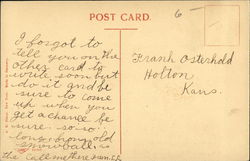 POST CARD.
6
I forgot to
tell you on the
other card to
write soon but
do it and be
sure to come
up when you
get a chance be
sure. so-so
long, old
snowball is
the call me there
Frank Osterhold
Holton
Kans.